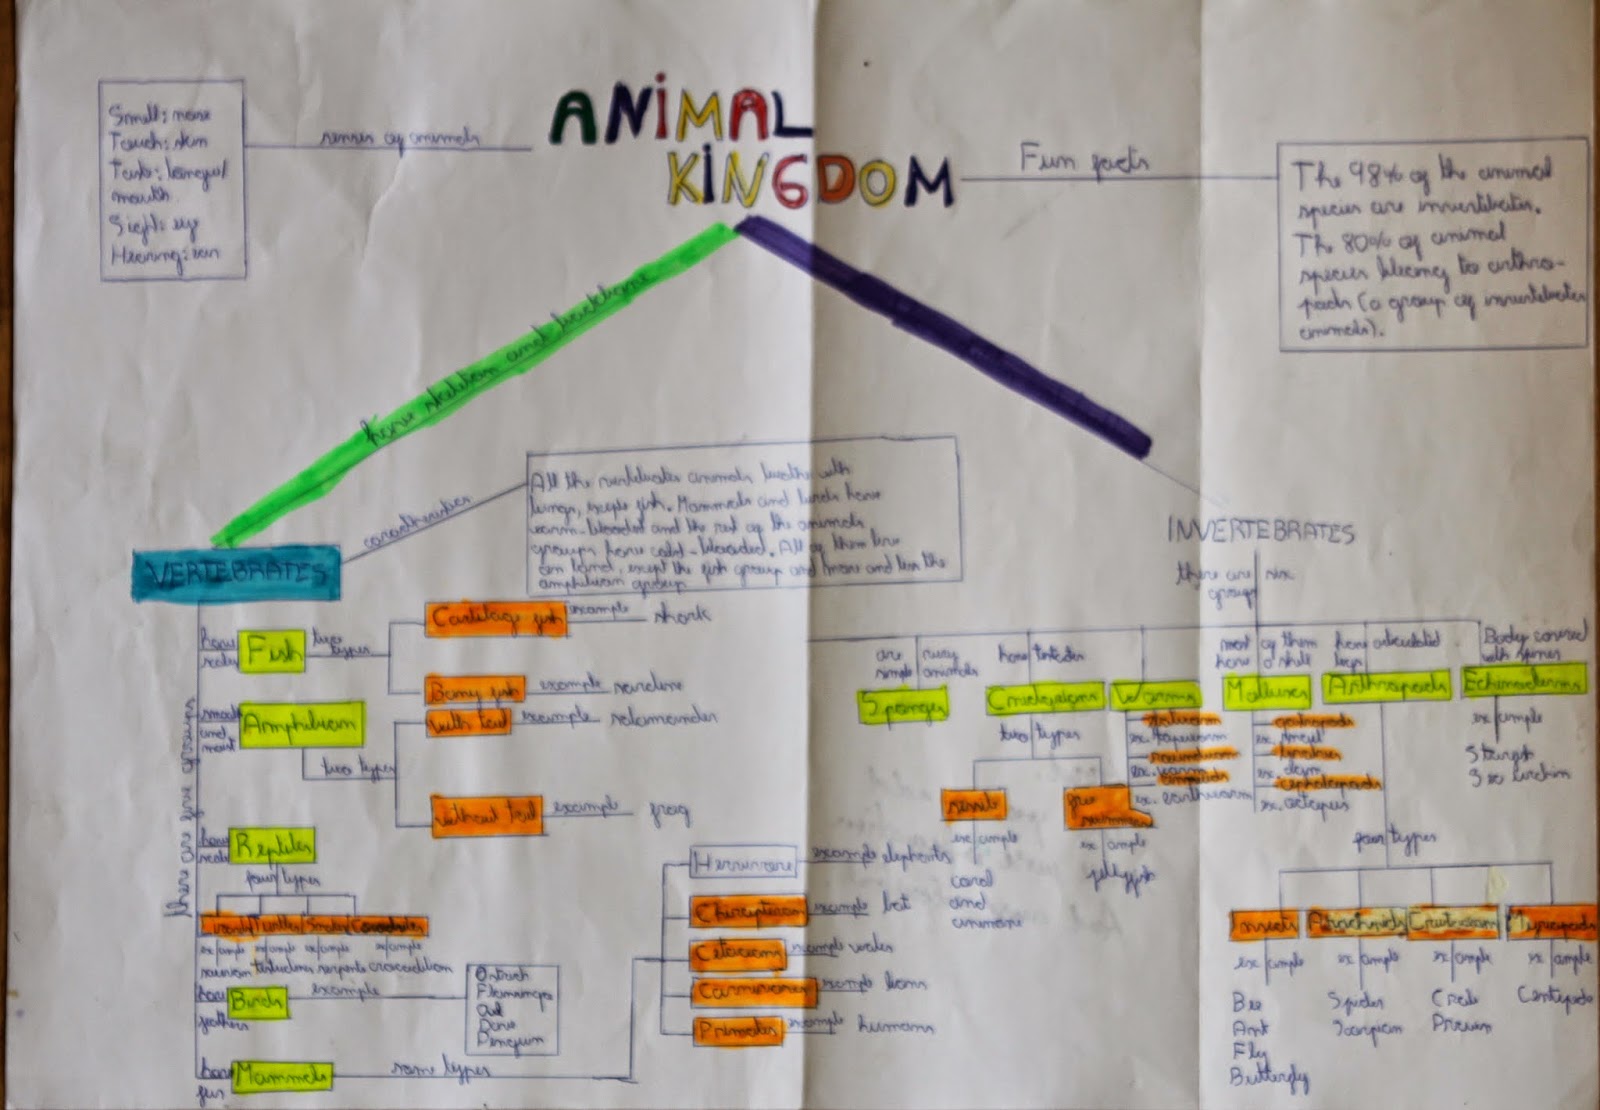 ANIMAL
KINGDOM
senses of animals
Smell: nose
Touch: skin
mouth
Fun facts
The 98% of the animal
species are invertebrates.
The 80% of animal
species belong to arthro-
pods (a group of invertebrates
animals).
have skeleton and backbone
VERTEBRATES
All the vertebrates animals breathe with
lungs, except fish. Mammals and birds have
warm-blooded and the rest of the animals
groups have cold-blooded. All of them live
on land, except the fish group and more and less the
amphibian group
there are five groups
have
Fish
two
types
Cartilage fish
example
shark
Bony fish
example
sardine
and
Amphibian
two types
with tail
example
salamander
without tail
example
frog
have
Reptiles
four types
example example example example
have
feathers
Birds
example
Ostrich
Owl
Dove
Penguin
have
fur
Mammals
some types
example elephants
Chiropteran
example
bat
Cetaceans
example
Carnivores
example
lions
Primates
example
humans
INVERTEBRATES
there are six
groups
are very
simple animals
Sponges
Cnidarians
two types
sessile
example
coral
and
anemone
free
example
jellyfish
Worms
ex. tapeworm
ex. worm
ex. earthworm
most of them
have a shell
Molluscs
ex. snail
ex. octopus
have articulated
legs
Arthropods
four types
Insects
example
Bee
Ant
Fly
Butterfly
Arachnids
example
Spider
Scorpion
Crustaceans
example
Myriapods
example
Centipede
Body covered
with spines
Echinoderms
example
Sea urchin